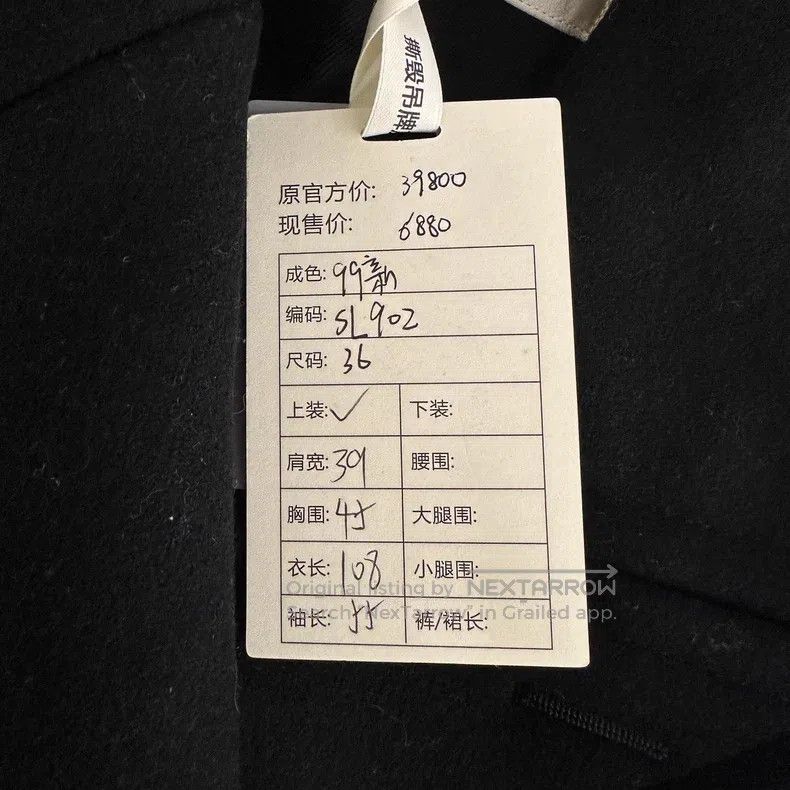 撕毁吊牌
原官方价: 39800
现售价: 6880
成色: 99新
编码: SL902
尺码: 36
上装: ✓ 下装:
肩宽: 39 腰围:
胸围: 45 大腿围:
衣长: 108 小腿围:
Original listing by NEXTARROW
Search "NexTarrow" in Grailed app.
袖长: 55 裤/裙长: